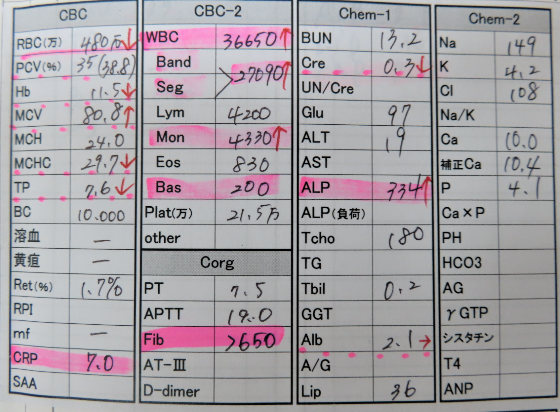 CBC
RBC(万) 480万↓
PCV(%) 35(38.8)
Hb 11.5↓
MCV 80.8↑
MCH 24.0
MCHC 29.7↓
TP 7.6↓
BC 10.000
溶血 —
黄疸 —
Ret(%) 1.7%
RPI
mf —
CRP 7.0
SAA
CBC-2
WBC 36650↑
Band
Seg 27090↑
Lym 4200
Mon 4330↑
Eos 830
Bas 200
Plat(万) 21.5万
other
Corg
PT 7.5
APTT 19.0
Fib >650
AT-III
D-dimer
Chem-1
BUN 13.2
Cre 0.3↓
UN/Cre
Glu 97
ALT 19
AST
ALP 334↑
ALP(負荷)
Tcho 180
TG
Tbil 0.2
GGT
Alb 2.1→
A/G
Lip 36
Chem-2
Na 149
K 4.2
Cl 108
Na/K
Ca 10.0
補正Ca 10.4
P 4.1
Ca×P
PH
HCO3
AG
γGTP
シスタチン
T4
ANP